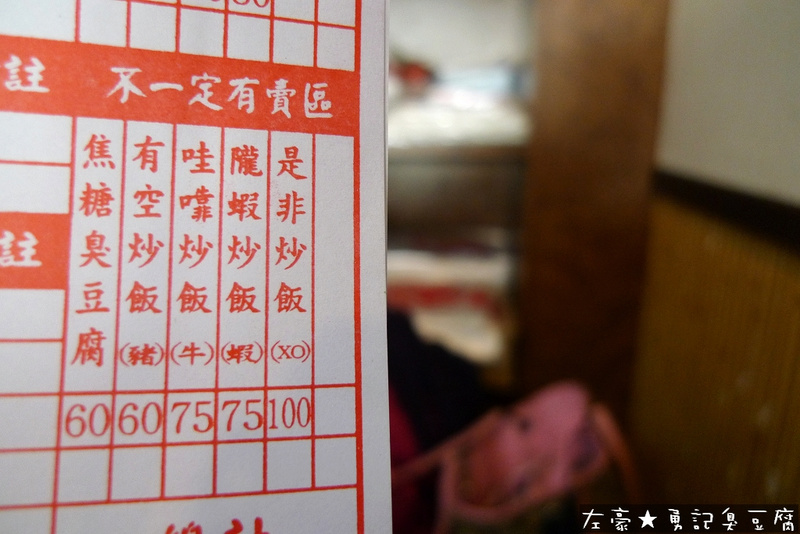 註
不一定有賣區
註
焦糖臭豆腐
有空炒飯(豬)
哇炒飯(牛)
朧蝦炒飯(蝦)
是非炒飯(XO)
60
60
75
75
100
左豪★勇記臭豆腐